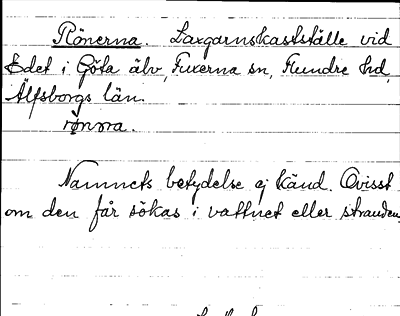 Rönerna. Laxgarnskastställe vid
Edet i Göta älv, Fuxerna sn, Flundre hd,
Älfsborgs län.
Namnets betydelse ej känd. Ovisst
om den får sökas i vattnet eller stranden.